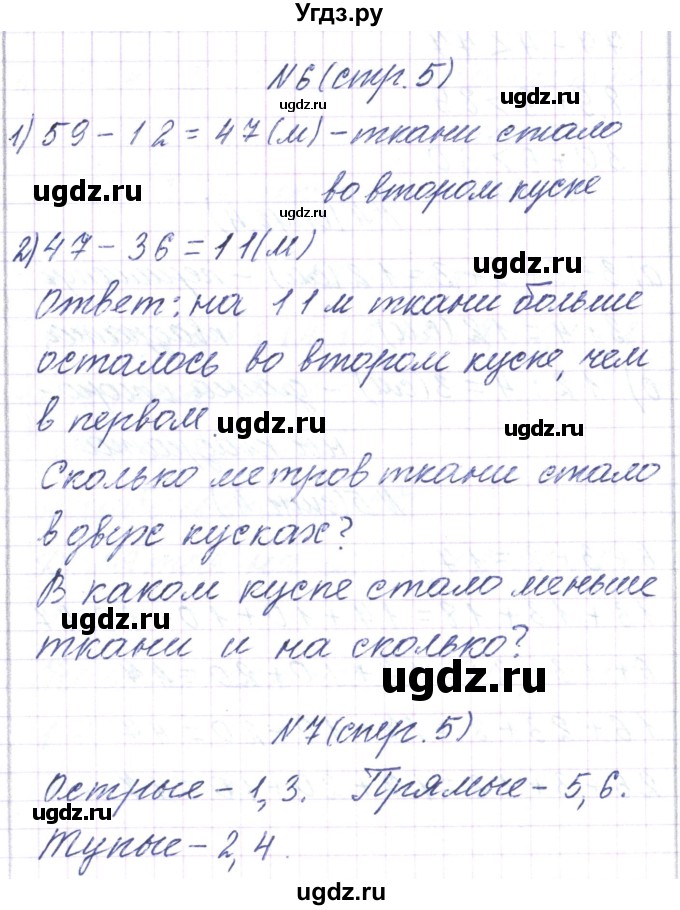 Угдз.ру
№6 (стр. 5)
1) 59 - 12 = 47 (м) - ткани стало
во втором куске
2) 47 - 36 = 11 (м)
Ответ: на 11 м ткани больше
осталось во втором куске, чем
в первом.
Сколько метров ткани стало
в двух кусках?
В каком куспе стало меньше
ткани и на сколько?
№7 (стр. 5)
Острые - 1, 3. Прямые - 5, 6.
Тупые - 2, 4.
ugdz.ru
ugdz.ru
ugdz.ru
ugdz.ru
ugdz.ru
ugdz.ru
ugdz.ru
ugdz.ru
ugdz.ru
ugdz.ru
ugdz.ru
ugdz.ru